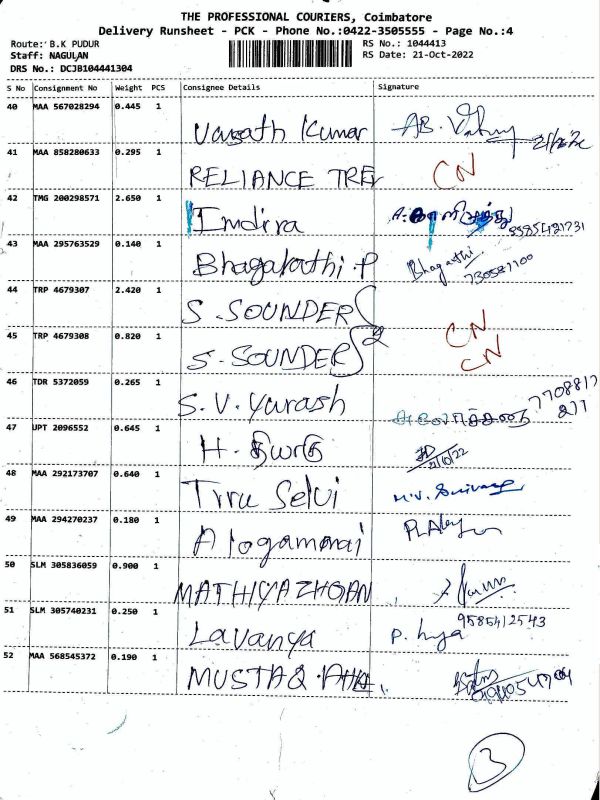 THE PROFESSIONAL COURIERS, Coimbatore
Delivery Runsheet - PCK - Phone No.:0422-3505555 - Page No.:4
Route: B.K PUDUR RS No.: 1044413
Staff: NAGULAN RS Date: 21-Oct-2022
DRS No.: DCJB104441304
S No Consignment No Weight PCS Consignee Details Signature
40 MAA 567028294 0.445 1 Vasath Kumar
41 MAA 858280633 0.295 1 RELIANCE TREN CN
42 TMG 200298571 2.650 1 Indira
43 MAA 295763529 0.140 1 Bhagarathi.P Bhagathi
44 TRP 4679307 2.420 1 S.SOUNDER CN
45 TRP 4679308 0.820 1 S.SOUNDER CN
46 TDR 5372059 0.265 1 S.V.Yurash 7708817
277
47 UPT 2096552 0.645 1 21/10/22
48 MAA 292173707 0.640 1 Tiru Selvi
49 MAA 294270237 0.180 1
50 SLM 305836059 0.900 1 MATHIYAZHGAN
51 SLM 305740231 0.250 1 Lavanya 9585412543
52 MAA 568545372 0.190 1 MUSTAQ
3